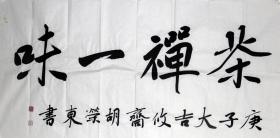 茶禪一味
庚子大吉攸齋胡榮東書